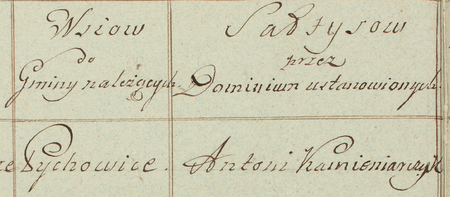 Wsiow
do
Gminy należących
Sołtysow
przez
Dominium ustanowionych
Pychowice. Antoni Kamieniarczyk